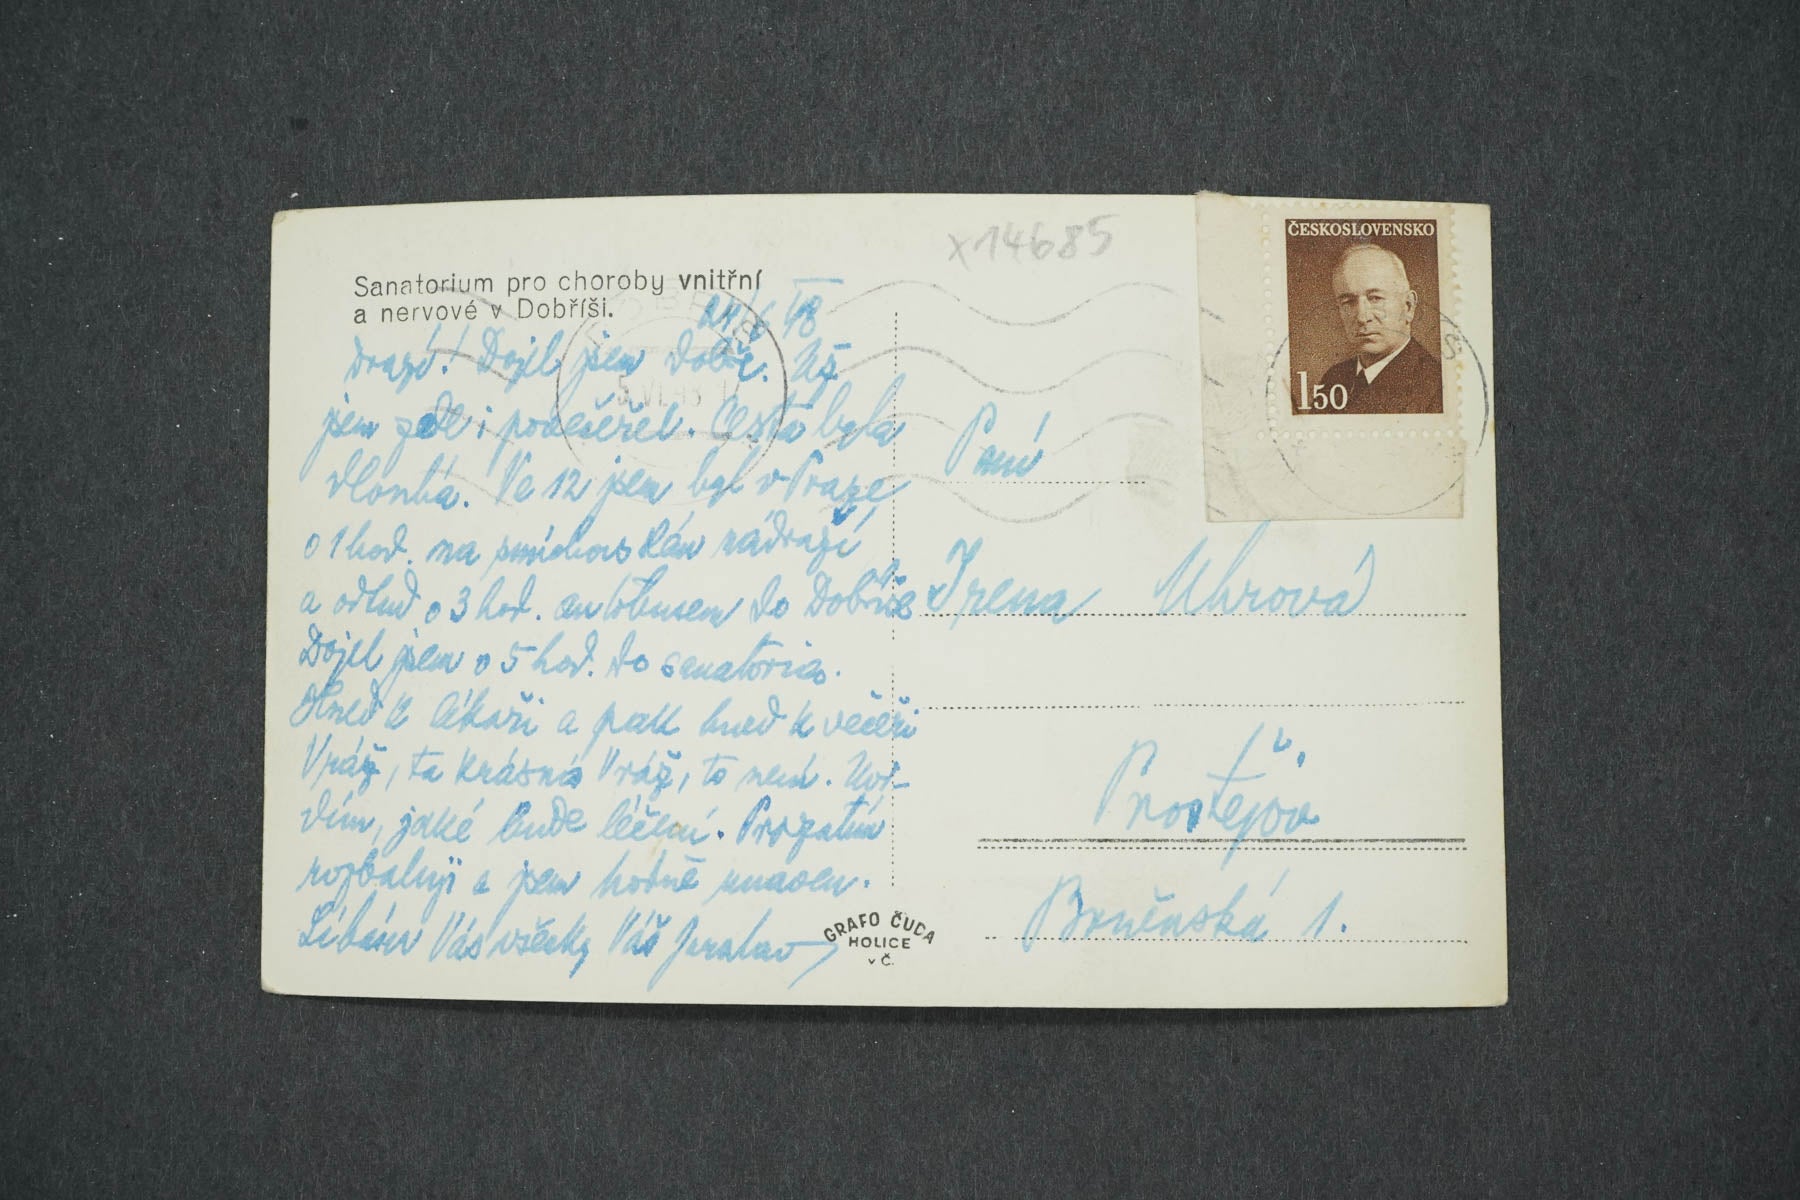 x14685
ČESKOSLOVENSKO
150
Sanatorium pro choroby vnitřní
a nervové v Dobříši.
48
Drazí! Dojel jsem dobře. Už
jsem zde i povečeřel. Cesta byla
dlouhá. Ve 12 jsem byl v Praze
o 1 hod. na smíchovském nádraží
a odtud o 3 hod. autobusem do Dobříše
Dojel jsem o 5 hod. do sanatoria.
Hned k lékaři a pak hned k večeři
Vráž, ta krásná Vráž, to není. Uvi-
dím, jaké bude léčení. Prozatím
rozbaluji a jsem hodně unaven.
Líbám Vás všecky Váš Jaroslav
Paní
Irena Uhrová
Prostějov
Brněnská 1.
GRAFO ČUDA
HOLICE
v Č.